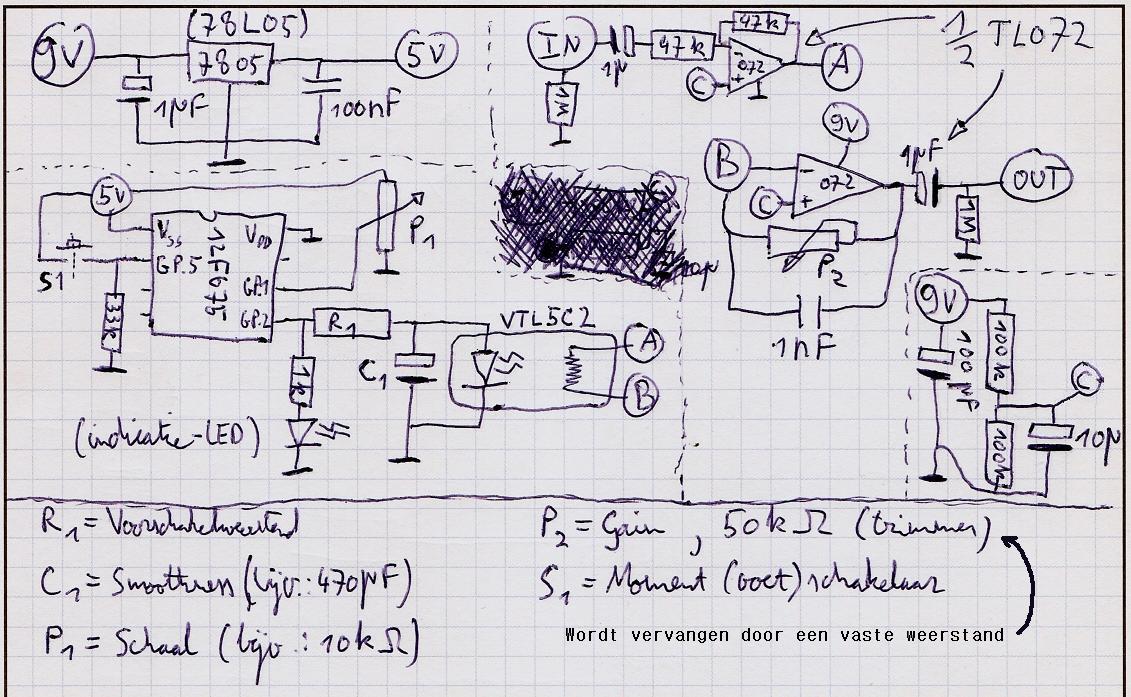 (78L05)
9V
7805
5V
1µF
100nF
IN
1µ
47k
47k
1M
C
-
+
072
A
1/2 TL072
5V
S1
33k
VSS
GP.5
12F675
VDD
GP.1
GP.2
P1
R1
1k
C1
VTL5C2
A
B
(indicatie-LED)
C
10µ
B
C
9V
-
+
072
1µF
OUT
1M
P2
1nF
9V
100µF
100k
100k
C
10µ
R1 = Voorschakelweerstand
C1 = Smoothness (bijv.: 470µF)
P1 = Schaal (bijv.: 10kΩ)
P2 = Gain, 50kΩ (trimmer)
S1 = Moment (voet)schakelaar
Wordt vervangen door een vaste weerstand